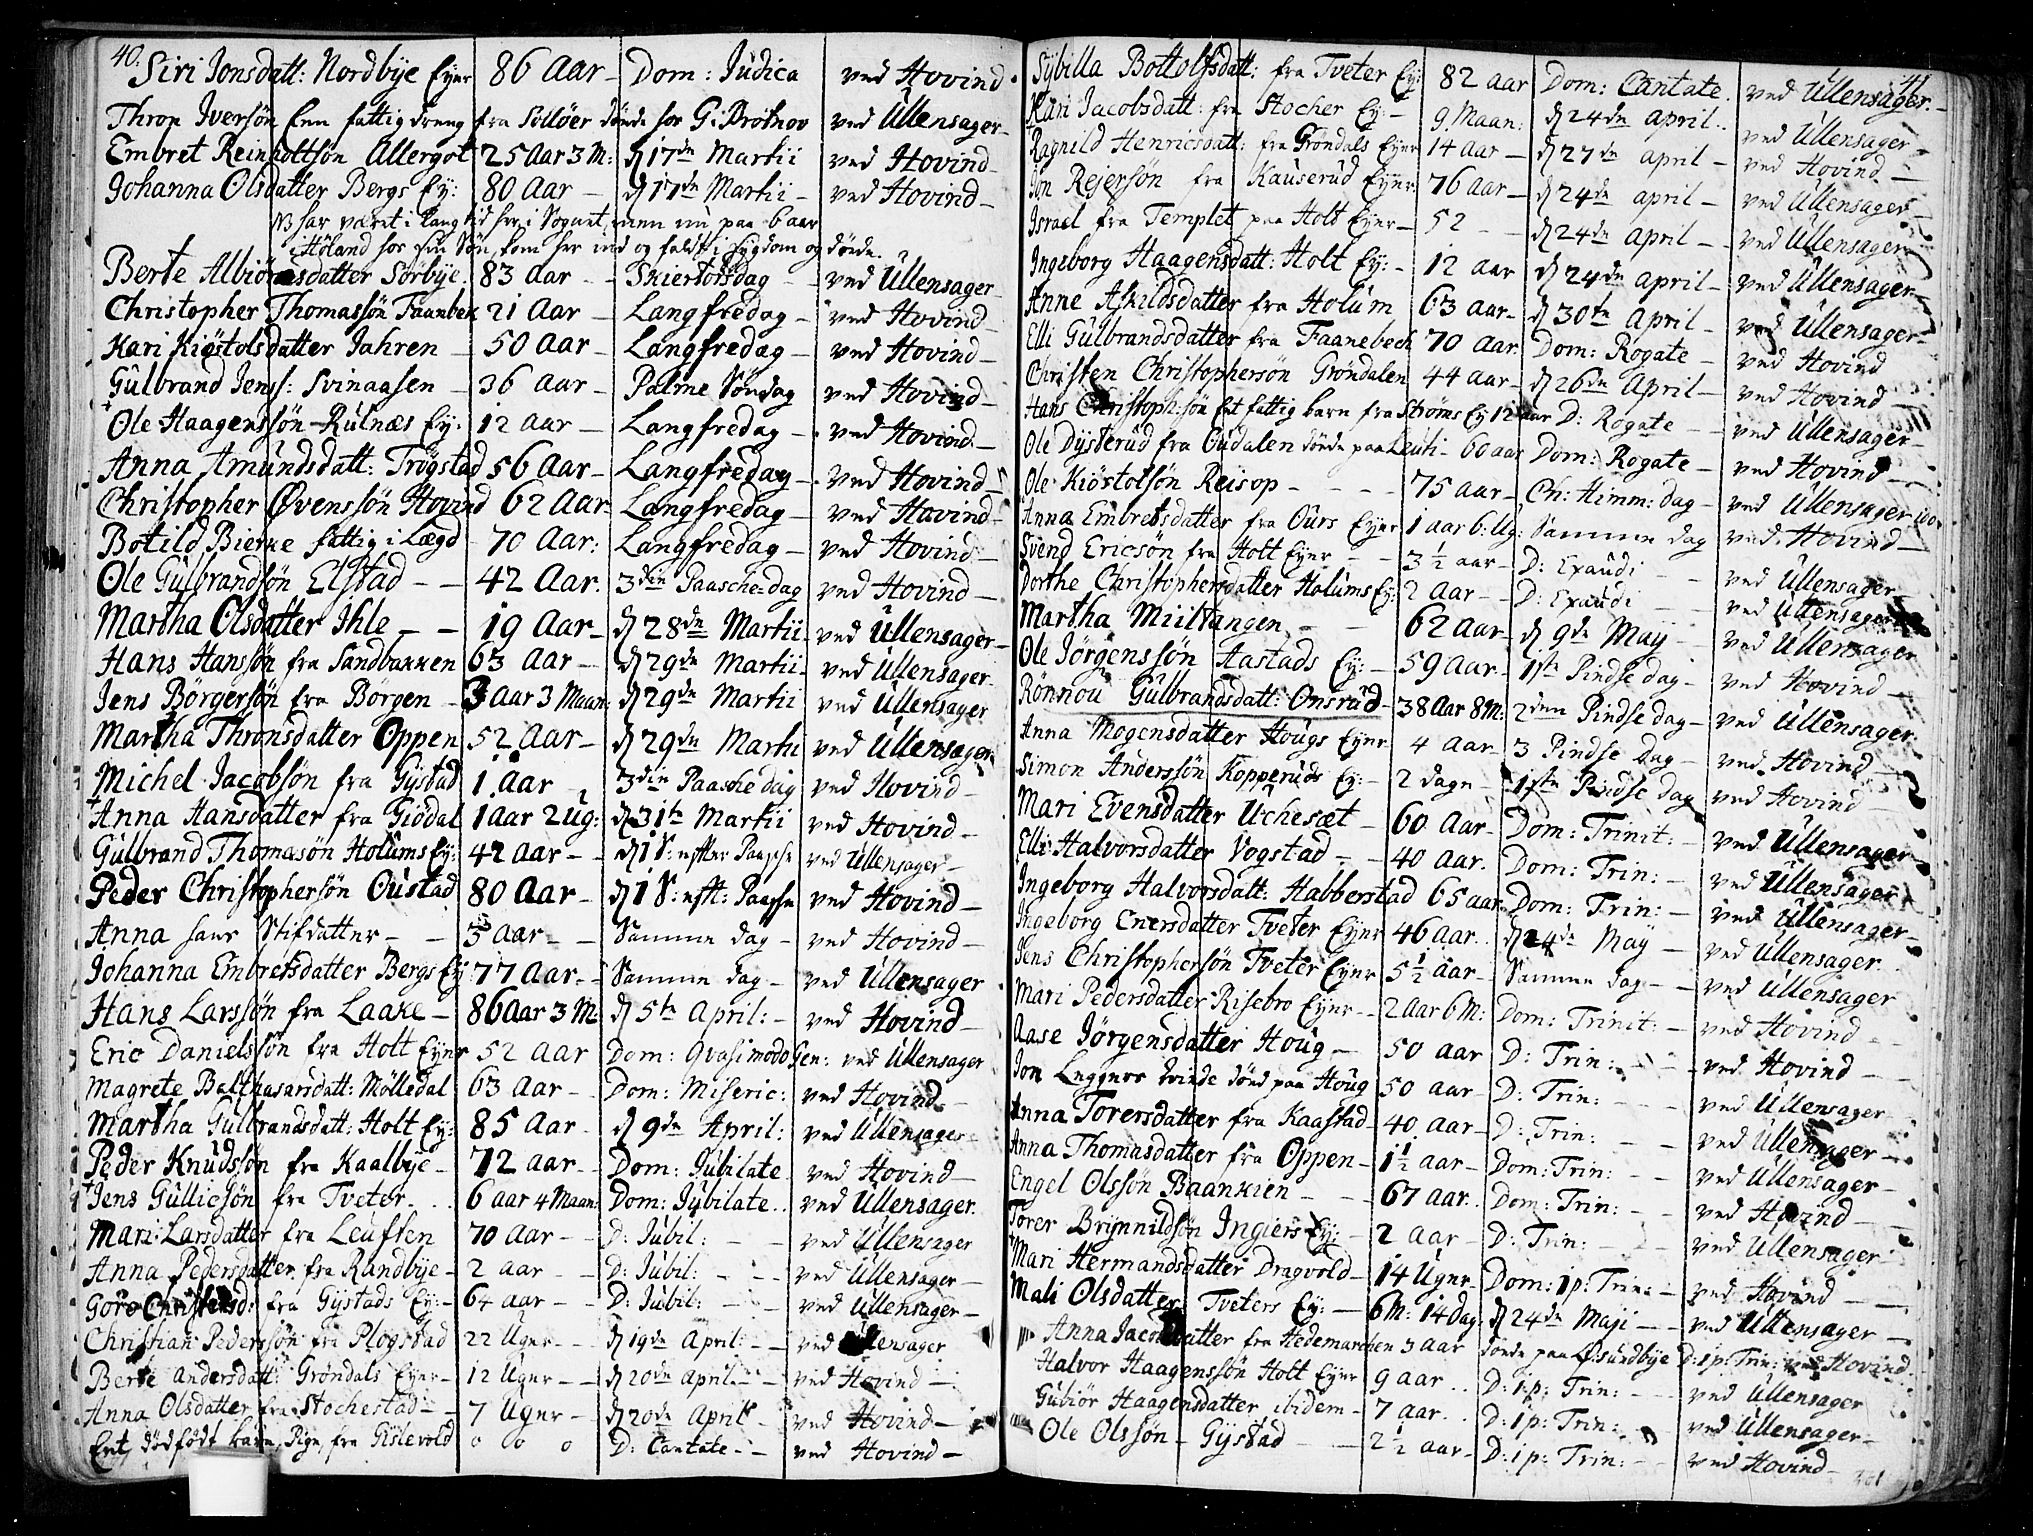 40.
Siri Jonsdatt: Nordbÿe Eÿer 86 Aar – Dom: Judica ved Hovind
Thron Iversön Een fattig dreng fra Sollöer döde hos G: ved Ullensager –
Embret Reinholtsön Allergot 25 Aar 3 M: d 17de Martii ved Hovind –
Johanna Olsdatter Bergs Eÿ: 80 Aar – d 17de Martii – ved Hovind –
NB har været i lang tid her i Sognet, men nu paa 6 aar
i Höland hos sin Sön, kom her ned og faldt i sygdom og döde.
Berte Albiörnsdatter Sörbÿe. 83 Aar – – Skiertorsdag ved Ullensager –
Christopher Thomassön Faanbek 21 Aar – Langfredag – ved Hovind –
Kari Kiöstolsdatter Jahren – 50 Aar – Langfredag – ved Hovind –
Gulbrand Jenss: Svinaasen – 36 Aar – Palme Söndag ved Hovind –
Ole Haagenssön Rulnæs Eÿ: 12 Aar – Langfredag – ved Hovind –
Anna Amundsdatt: Trögstad 56 Aar – Langfredag – ved Hovind –
Christopher Övenssön Hovind 62 Aar – Langfredag – ved Hovind –
Botild Bierke fattig i Lægd 70 Aar: Langfredag – ved Hovind –
Ole Gulbrandsön Elstad – – 42 Aar. 3die Paasche-dag ved Hovind –
Martha Olsdatter Ihle – – 19 Aar – d 28de Martii – ved Ullensager –
Hans Hanssön fra Sandbakken 63 Aar – d 29de Martii – ved Ullensager –
Jens Börgersön fra Börgen – 3 Aar 3 Maan: d 29de Martii ved Ullensager
Martha Thronsdatter Oppen 52 Aar – d 29de Martii ved Ullensager
Michel Jacobsön fra Gÿstad 1 Aar – 3die Paasche dag ved Hovind –
Anna Hansdatter fra Giödal 1 Aar 2 Ug: d 31te Martii ved Hovind –
Gulbrand Thomasön Holums Eÿ: 42 Aar – – d 1 S: efter Paasche ved Ullensager –
Peder Christophersön Oustad 80 Aar – d 1 S: eft: Paasche ved Hovind –
Anna hans Stifdatter – – 3 Aar – – Samme dag – ved Hovind –
Johanna Embretsdatter Bergs Eÿ 77 Aar – – Samme dag – ved Ullensager
Hans Larssön fra Laake – 86 Aar 3 M: d 5te April: – ved Hovind –
Eric Danielssön fra Holt Eÿer 52 Aar Dom: Qvasimodo Gen: ved Ullensager
Magrete Balthasarsdatt: Mölledal 63 Aar – Dom: Miseric: ved Hovind –
Martha Gulbrandsdatt: Holt Eÿ: 85 Aar – d 9de April: ved Ullensager –
Peder Knudssön fra Kaalbÿe – 72 Aar – – Dom: Jubilate. ved Hovind –
Jens Gullicsön fra Tveter. 6 Aar 4 Maan: Dom: Jubilate. ved Ullensager.
Mari Larsdatter fra Leufsen 70 Aar – – D: Jubil: – – ved Ullensager
Anna Pedersdatter fra Randbÿe – 2 Aar – – D: Jubil: – – ved Ullensager –
Goro fra Gÿstads Eÿ: – 64 Aar – – D: Jubil: – – ved Ullensager –
Christian Pederssön fra Plogstad 22 Uger – – d 19de April: – ved Ullensager
Berte Andersdatt: Gröndals Eÿer – 12 Uger – – d 20de April – ved Hovind –
Anna Olsdatter fra Stochestad – – 7 Uger – – d 20de April – ved Hovind –
Ent dödfödt barn, Pige, fra Gislevold o o o D: Cantate – ved Hovind –
41
Sÿbilla Bottolfsdatt: fra Tveter Eÿ: 82 Aar Dom: Cantate. ved Ullensager. –
Kari Jacobsdatt: fra Stocher Eÿ: – 9 Maan: d 24de April. ved Ullensager –
Ragnild Henricsdatt: fra Gröndals Eÿer 14 Aar – d 27de April – ved Hovind –
Jon Rejersön fra Kauserud Eÿer 76 Aar – d 24de April – ved Ullensager –
Israel fra Templet paa Holt Eÿer – 52 – – d 24de April – ved Ullensager
Ingeborg Haagensdatt: Holt Eÿ: – 12 Aar d 24de April – ved Ullensager –
Anne Askildsdatter fra Holum 63 Aar – d 30te April – ved Ullensager –
Elli Gulbrandsdatter fra Faanebech 70 Aar. Dom: Rogate – ved Hovind
Christen Christophersön Gröndalen 44 Aar – d 26de April – ved Hovind –
Hans Christoph: sön Eet fattig barn fra Ströms Eÿ 12 aar D: Rogate – – ved Ullensager –
Ole Dÿsterud fra Oudalen döde paa 60 Aar Dom: Rogate – ved Hovind –
Ole Kiöstolsön Reisop – – – 75 Aar – Ch: Himm: dag – ved Ullensager
Anna Embretsdatter fra Ours Eÿer 1 Aar 6: Ug: Samme dag ved Hovind –
Svend Ericsön fra Holt Eÿer – – 3 ½ Aar – D: Exaudi – – ved Ullensager –
Dorthe Christophersdatter Holums Eÿ: 2 Aar – – D: Exaudi – ved Ullensager
Martha Miiltangen – – 62 Aar – d 9de Maÿ – ved Ullensager
Ole Jörgenssön Aastads Eÿ: – 59 Aar – 1ste Pindse dag – ved Hovind –
Rönnou Gulbrandsdatt: Onsrud – 38 Aar 8 M: 2den Pindse dag – ved Ullensager
Anna Mogensdatter Hougs Eÿer 4 Aar – 3 Pindse Dag – ved Hovind –
Simon Anderssön Kopperuds Eÿ: – 2 dage – 1ste Pindse dag ved Hovind –
Mari Evensdatter Uchesæt – 60 Aar – Dom: Trinit: – ved Ullensager –
Elli Halvorsdatter Vogstad – – 40 Aar. Dom: Trin: – ved Ullensager
Ingeborg Halvorsdatt: Habberstad 65 Aar Dom: Trin: – ved Ullensager –
Ingeborg Enersdatter Tveter Eÿer 46 Aar. d 24de Maÿ – ved Ullensager
Jens Christophersön Tveter Eÿer 5 ½ Aar – Samme dag – ved Ullensager
Mari Pedersdatter Risebro Eÿer – 2 Aar 6 M: Dom: Trinit: – ved Hovind –
Aase Jörgensdatter Houg – 50 Aar D: Trin: – – ved Hovind –
Jon qvinde död paa Houg 50 Aar – D: Trin: – – ved Ullensager –
Anna Torersdatter fra Kaastad – 40 Aar – D: Trin: – – ved Ullensager –
Anna Thomasdatter fra Oppen – 1 ½ Aar – Dom: Trin: ved Ullensager –
Engel Olssön Baankien – – 67 Aar. Dom: Trin: – ved Hovind –
Torer Brÿnnildsön Ingiers Eÿ: – 2 Aar – D: Trin: – – ved Ullensager
Mari Hermandsdatter Dragvold – 14 Uger – Dom: 1 p: Trin: – ved Hovind –
Mali Olsdatter Tveters Eÿ: – 6 M: 14 Dag: d 24de Maji – – ved Ullensager –
Anna fra Hedemarchen 3 aar döde paa D: 1 p: Trin: ved Hovind.
Halvor Haagenssön Holt Eÿer 9 Aar.. D: 1 p: Trin: – – ved Ullensager
Gubiör Haagensdatter ibidem – 7 Aar.. D: 1 p: Trin: – – ved Ullensager –
Ole Olssön – Gÿstad – – 2 ½ Aar – D: 1 p: Trin: – – ved Hovind –